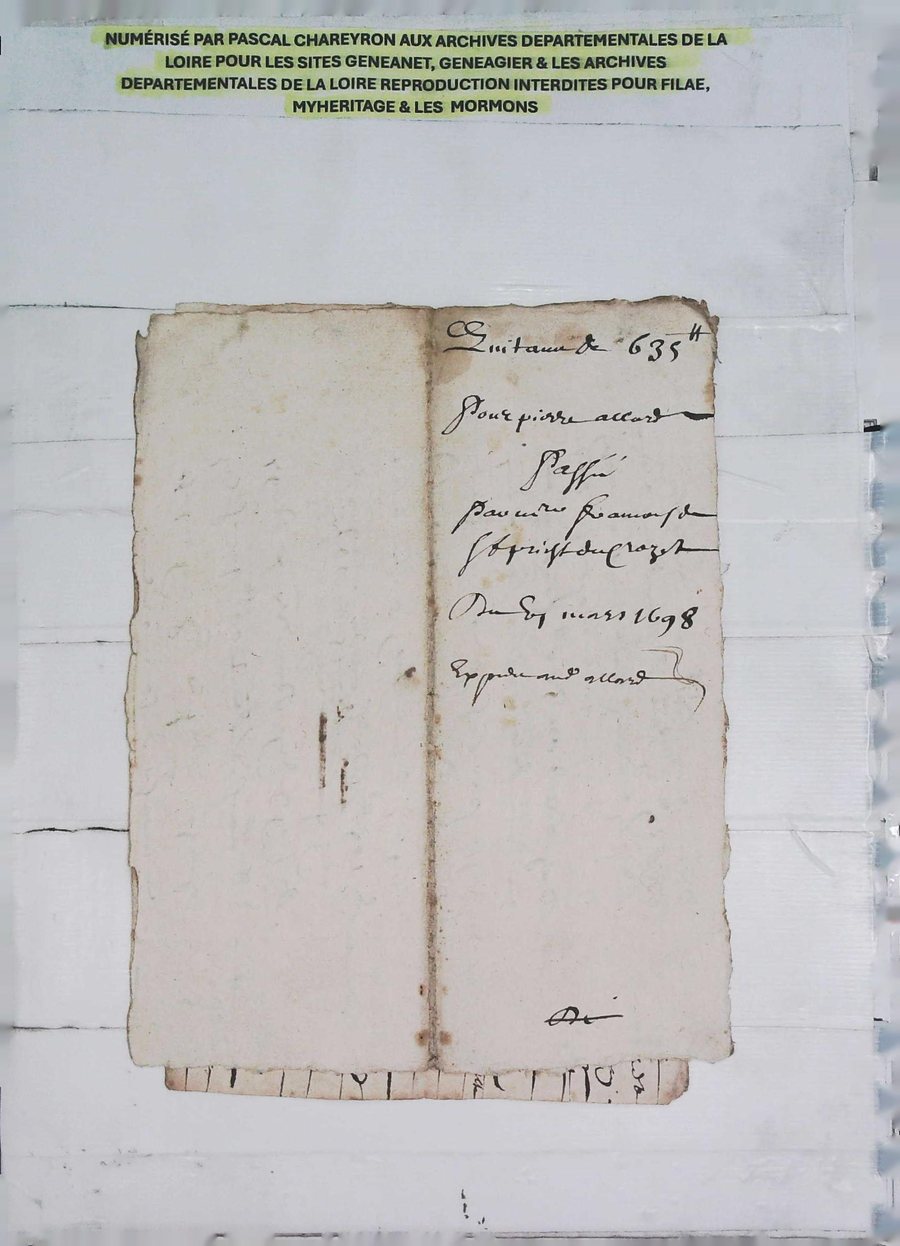 NUMÉRISÉ PAR PASCAL CHAREYRON AUX ARCHIVES DEPARTEMENTALES DE LA
LOIRE POUR LES SITES GENEANET, GENEAGIER & LES ARCHIVES
DEPARTEMENTALES DE LA LOIRE REPRODUCTION INTERDITES POUR FILAE,
MYHERITAGE & LES MORMONS
Quitance de 635 ₶
Pour pierre allard
Passé
St priest du Crozet
Du mars 1698
allard